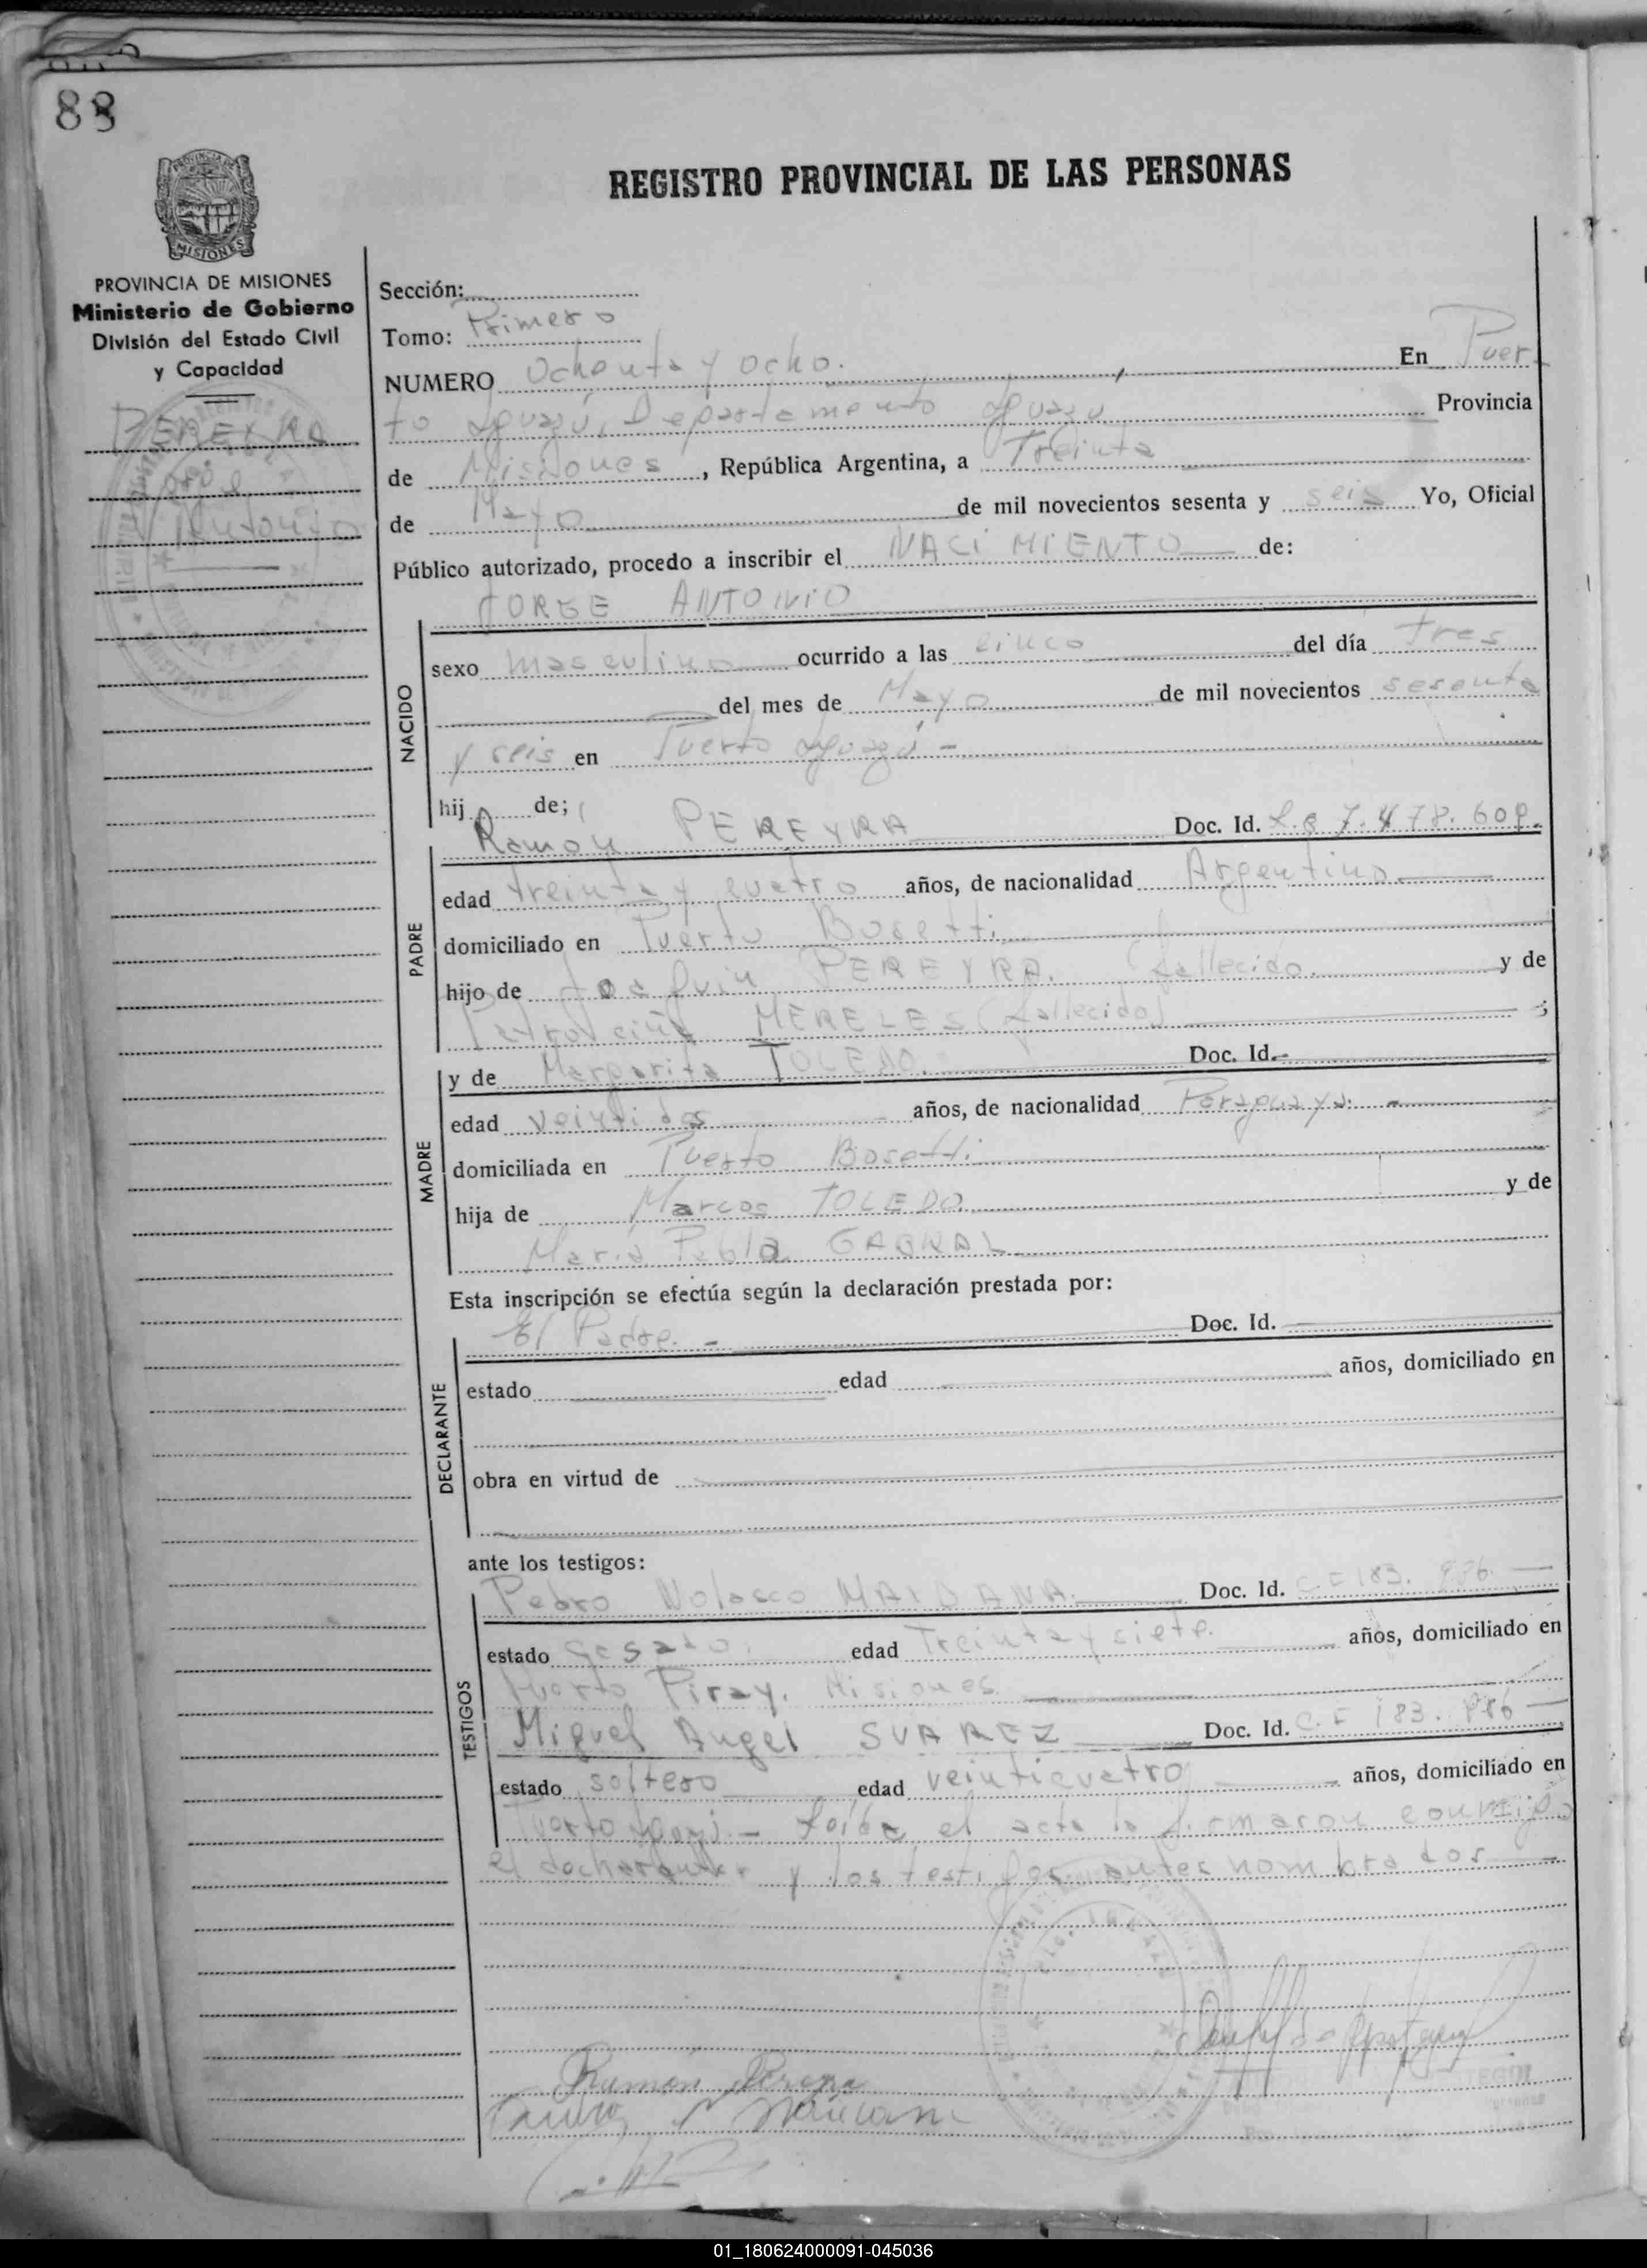 88
REGISTRO PROVINCIAL DE LAS PERSONAS
MISIONES
PROVINCIA DE MISIONES
Ministerio de Gobierno
División del Estado Civil
y Capacidad
PEREYRA
Jorge
Antonio
Sección:
Tomo: Primero
NUMERO Ochenta y ocho. En Puer
to Iguazú, Departamento Iguazú Provincia
de Misiones, República Argentina, a Treinta
de Mayo de mil novecientos sesenta y seis Yo, Oficial
Público autorizado, procedo a inscribir el NACIMIENTO de:
JORGE ANTONIO
NACIDO
sexo masculino ocurrido a las cinco del día tres
del mes de Mayo de mil novecientos sesenta
y seis en Puerto Iguazú -
hij de;
PADRE
Ramon PEREYRA Doc. Id. 7.478.609.
edad treinta y cuatro años, de nacionalidad Argentino
domiciliado en Puerto Bosetti
hijo de Joaquin PEREYRA. (fallecido. y de
MERELES (fallecido)
MADRE
y de Margarita TOLEDO. Doc. Id.
edad veintidos años, de nacionalidad Paraguaya. -
domiciliada en Puerto Bosetti
hija de Marcos TOLEDO. y de
Maria Pabla
Esta inscripción se efectúa según la declaración prestada por:
DECLARANTE
El Padre. - Doc. Id.
estado edad años, domiciliado en
obra en virtud de
ante los testigos:
TESTIGOS
Pedro Nolasco MAIDANA Doc. Id. 183.
estado Casado. edad Treinta y siete. años, domiciliado en
Puerto Piray. Misiones
Miguel Angel SUAREZ Doc. Id. 183.
estado soltero edad veinticuatro años, domiciliado en
Puerto - Leída el acta la firmaron conmigo
el y los testigos antes nombrados
Ramón Pereyra
01_180624000091-045036